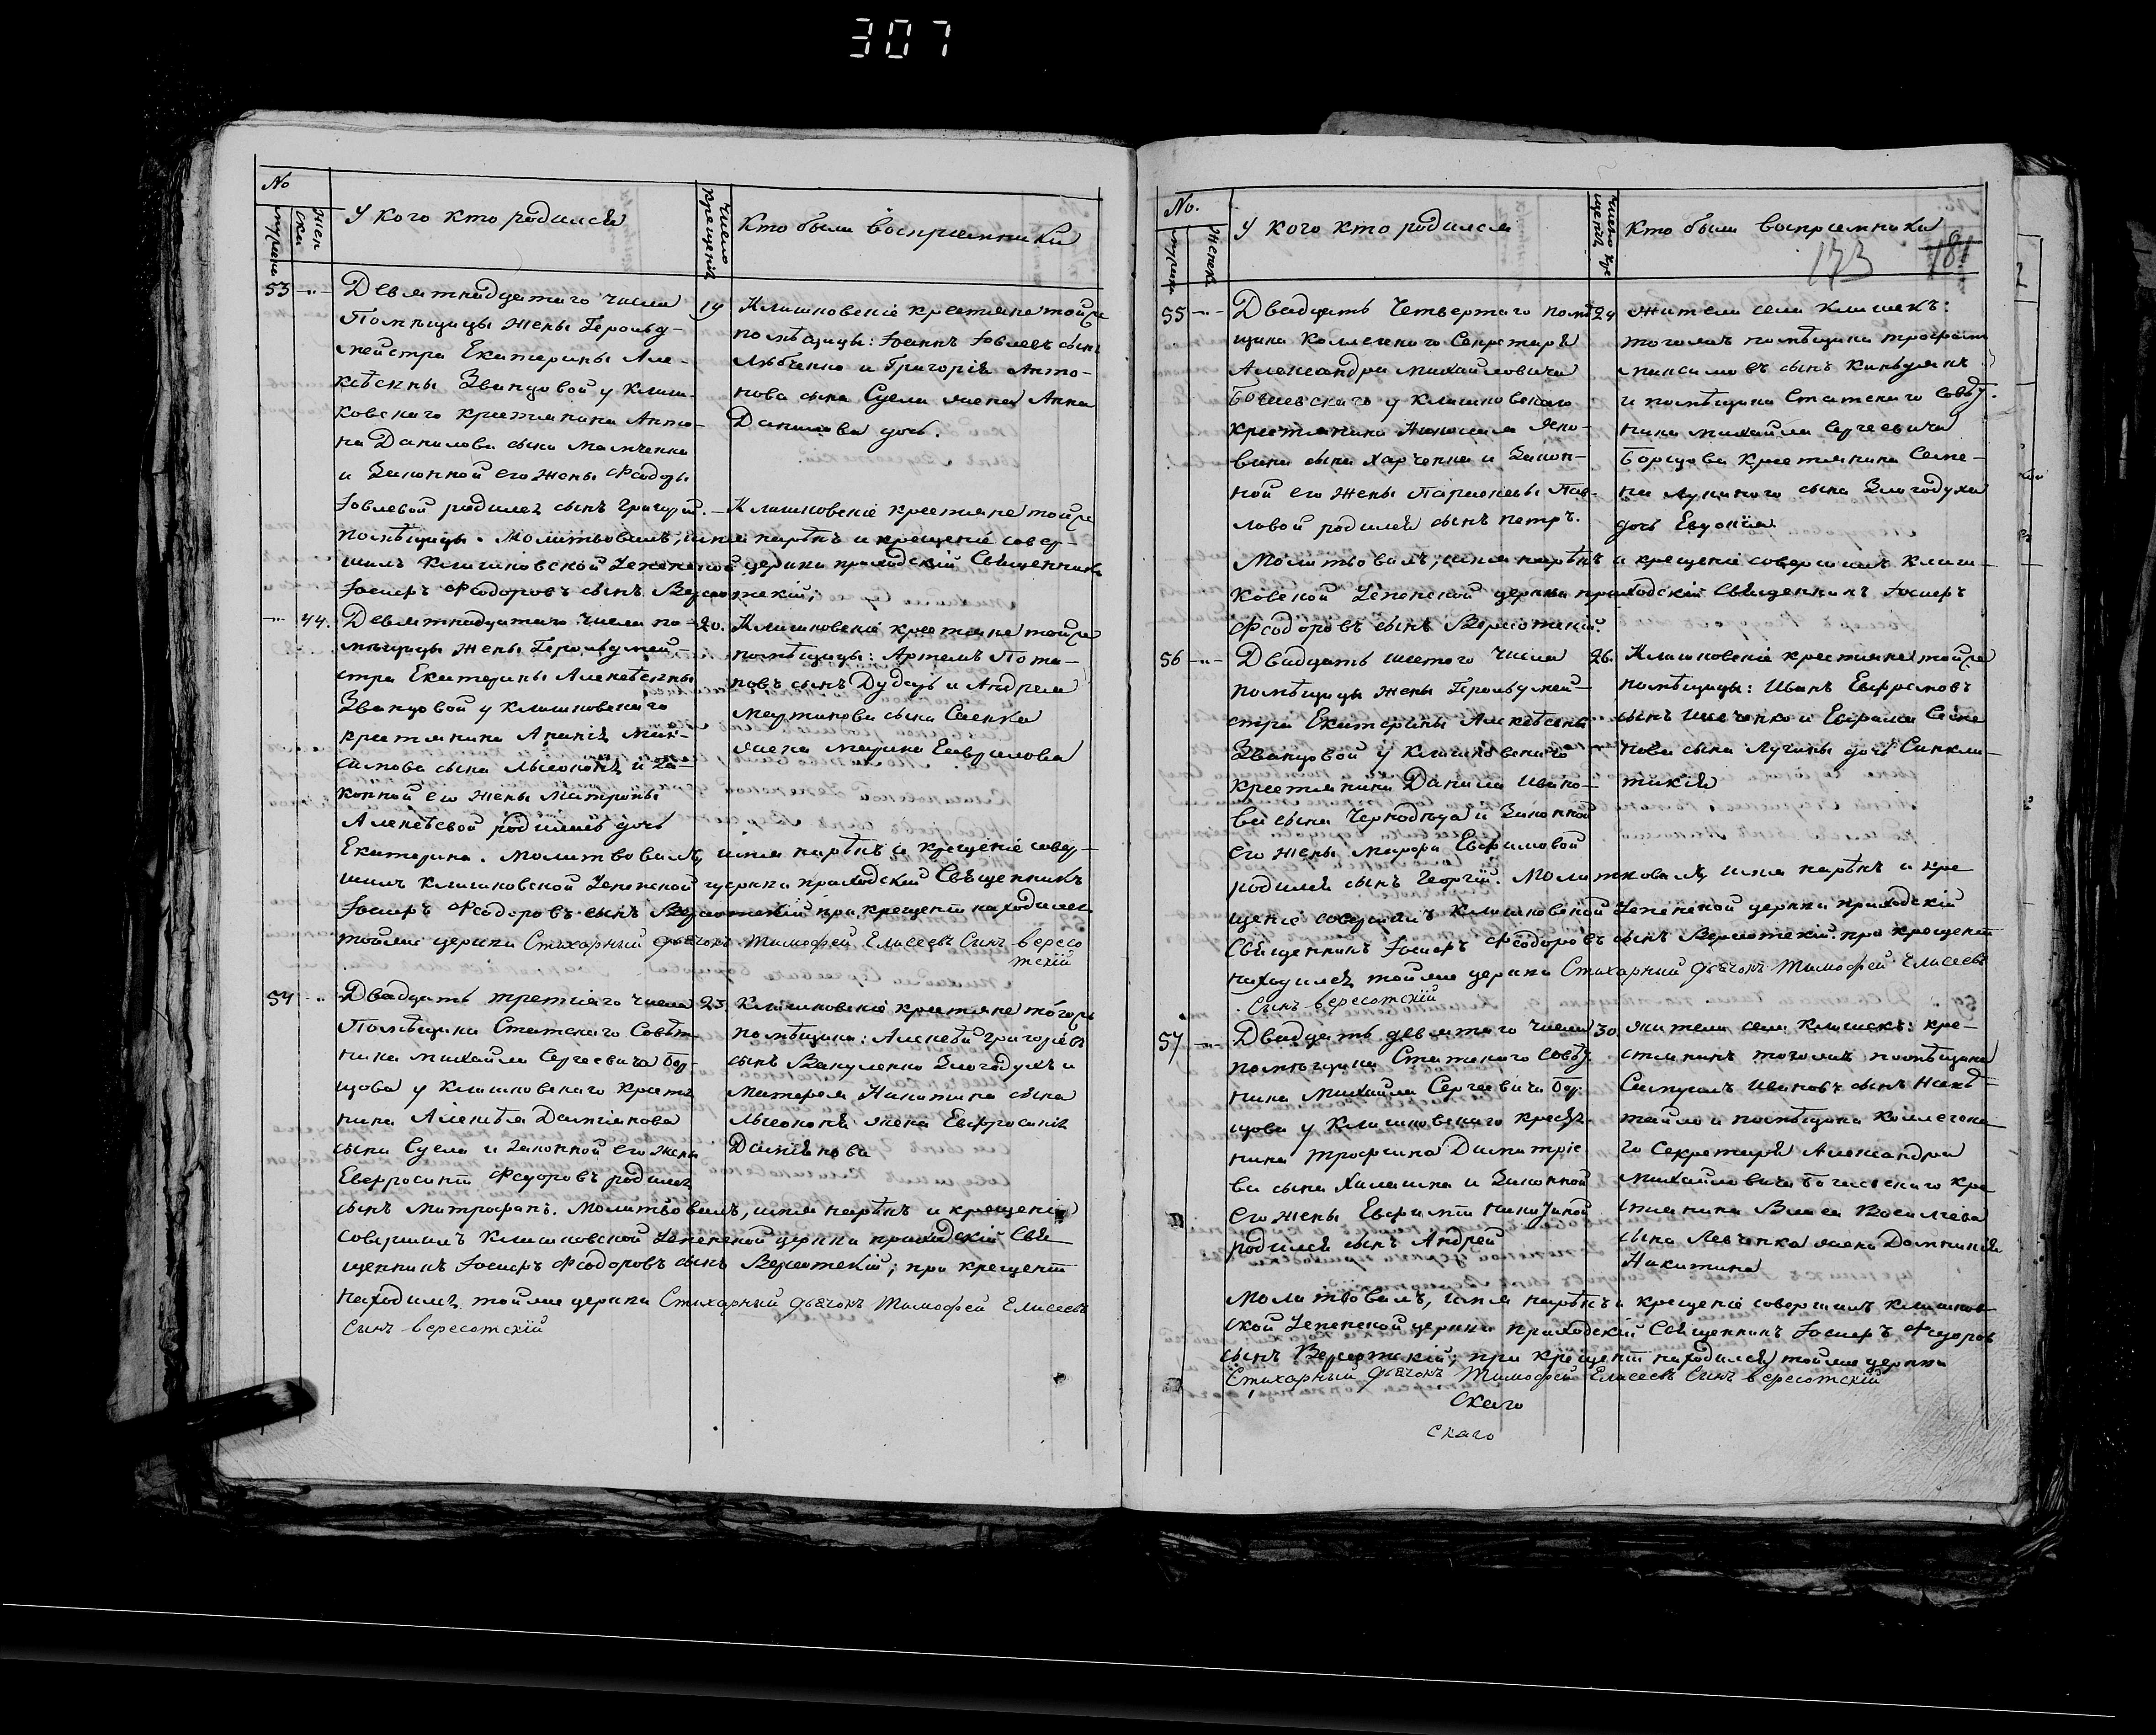 307
No
мужеска
женска
У кого кто родился
Число крещенія
Кто были воспріемники
53 —
Девятнадцатаго числа
Помѣщицы жены Герольд-
мейстра Екатерины Але-
ксѣевны Званцовой у Клиш-
ковскаго крестьянина Анто-
на Данилова сына
и Законной его жены Феодоры
Іовлевой родился сынъ Григорій. —
19
Клишковскіе крестьяне тойже
помѣщицы: Іоаннъ Іовлевъ сынъ
Любченко и Григорія Анто-
нова сына Суели жена Анна
Данилова дочь.
Клишковскіе крестьяне тойже
помѣщицы. Молитвовалъ, имя нарѣкъ и крещеніе совер-
шилъ Клишковской Успенской церкви приходскій Священникъ
Іосифъ Феодоровъ сынъ Вересотскій;
— 44.
Девятнадцатаго числа по-
мѣщицы жены Герольдмей-
стра Екатерины Алексѣевны
Званцовой у клишковскаго
крестьянина Ананія Мак-
симова сына Лысоконя и за-
конной его жены Матроны
Алексѣевой родилась дочь
20.
Клишковскіе крестьяне тойже
помѣщицы: Артемъ Пота-
повъ сынъ Дударь и Андрея
Мартинова сына Саенка
жена Марина Гаврилова
Екатерина. Молитвовалъ, имя нарѣкъ и крещеніе совер-
шилъ клишковской Успенской церкви приходскій Священникъ
Іосифъ Феодоровъ сынъ Вересотскій при крещеніи находился
тойже церкви Стихарный дьячокъ Тимофей Елисеевъ Сынъ вересо
тскій
54 ..
Двадцать третіяго числа
Помѣщика Статскаго Совѣт-
ника Михайла Сергеевича Бор-
щова у клишковскаго крестья
нина Алексѣя Даміянова
сына Суели и законной его жены
Евфросиніи Феодоровъ родился
23.
Клишковскіе крестьяне тогожъ
помѣщика: Алексѣй Григоріевъ
сынъ Вакуленко Злогодухъ и
Матфея Никитина сына
Лысоконя жена Евфросинія
Даміянова
сынъ Митрофанъ. Молитвовалъ, имя нарѣкъ и крещеніе
совершилъ Клишковской Успенской церкви приходскій Свя
щенникъ Іосифъ Феодоровъ сынъ Вересотскій; при крещеніи
находился тойже церкви Стихарный дьячокъ Тимофей Елисеевъ
Сынъ вересотскій
No.
мужеска
женск
У кого кто родился
Число кре
щенія
Кто были воспріемники
173
181
55 —
Двадцать Четвертаго помѣ
щика Коллежскаго Секретаря
Александра михайловича
Богаевскаго у Клишковскаго
крестьянина Никифора Яко-
влева сына Харченка и Закон-
ной его жены Параскевы Пав-
ловой родился сынъ петръ.
24
жители села Клишекъ:
тогожъ помѣщика трофимъ
максимовъ сынъ
и помѣщика Статскаго Совѣт-
ника михайла Сергеевича
Борщова Крестьянина Семе-
на Лукинаго сына Злогодуха
дочь Евдокія
Молитвовалъ, имя нарѣкъ и крещеніе совершилъ клиш-
ковской Успенской церкви приходскій Священникъ Іосифъ
Феодоровъ сынъ Вересотскій.
56 —
Двадцать шестого числа
помѣщицы жены Герольдмей-
стра Екатерины Алексѣевны
Званцовой у клишковскаго
крестьянина Данила Ивано-
ва сына Чернодѣда и Законной
его жены Марфы Евфимовой
26.
Клишковскіе крестьяне тойже
помѣщицы: Иванъ Евфремовъ
сынъ Шевченко и Ефрема Семе
нова сына Лучины дочь Синкли-
тикія
родился сынъ Георгій. Молитвовалъ, имя нарѣкъ и кре
щеніе совершилъ Клишковской Успенской церкви приходскій
Священникъ Іосифъ Феодоровъ сынъ Вересотскій. при крещеніи
находился тойже церкви Стихарный дьячокъ Тимофей Елисеевъ
Сынъ вересотскій
57 —
Двадцать девятаго числа
помѣщика Статскаго Совѣт
ника Михайла Сергеевича Бор
щова у Клишковскаго крестья
нина Трофима Димитріе
ва сына Халимка и Законной
его жены Евфиміи Никитиной
родился сынъ Андрей
30.
жители села Клишекъ: кре-
стьянинъ тогожъ помѣщика
Самуилъ Ивановъ сынъ
и помѣщика Коллежска
го Секретаря Александра
михайловича Богаевскаго кре
стьянина Власа Василіева
сына Левченка жена Домникія
Никитина
Молитвовалъ, имя нарѣкъ и крещеніе совершилъ клишков
ской Успенской церкви приходскій Священникъ Іосифъ Феодоров
сынъ Вересотскій; при крещеніи находился тойже церкви
Стихарный дьячокъ Тимофей Елисеевъ Сынъ вересотскій
скаго
скаго